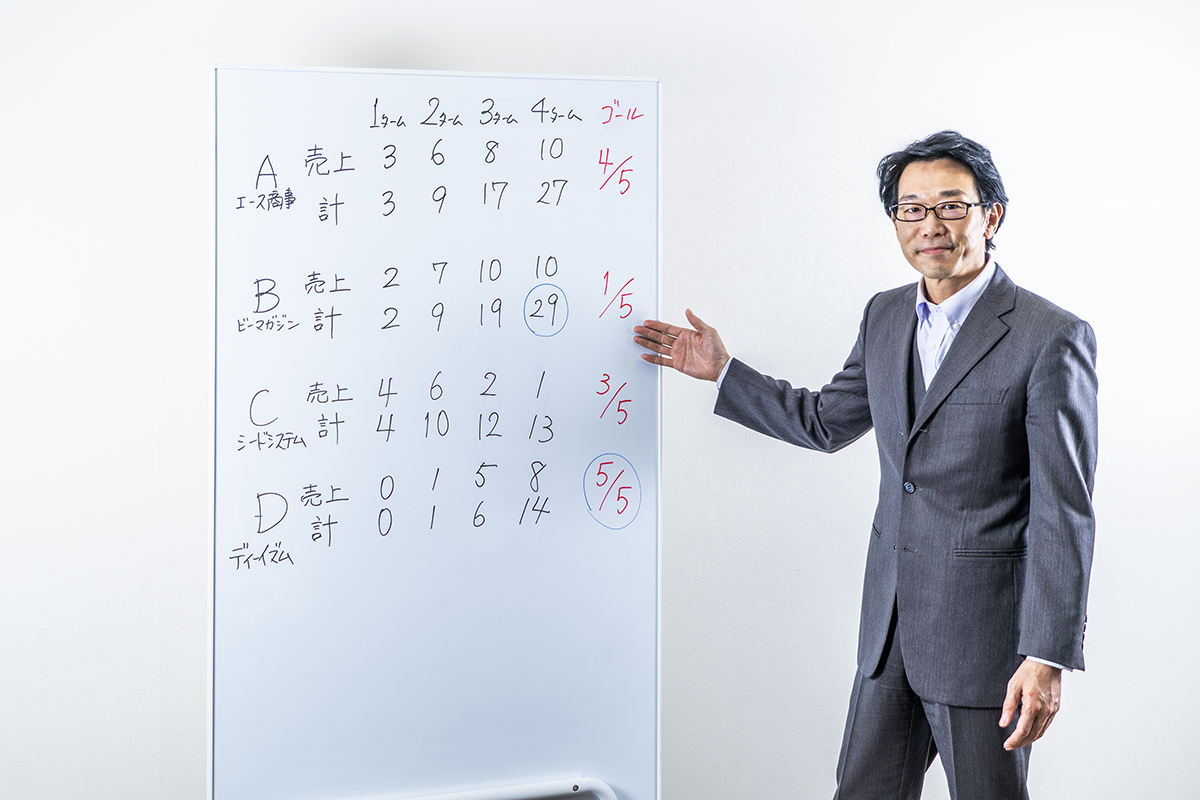 1ターム 2ターム 3ターム 4ターム ゴール
A 売上 3 6 8 10 4/5
エース商事 計 3 9 17 27
B 売上 2 7 10 10 1/5
ビーマガジン 計 2 9 19 29
C 売上 4 6 2 1 3/5
シードシステム 計 4 10 12 13
D 売上 0 1 5 8 5/5
計 0 1 6 14
ディーイズム